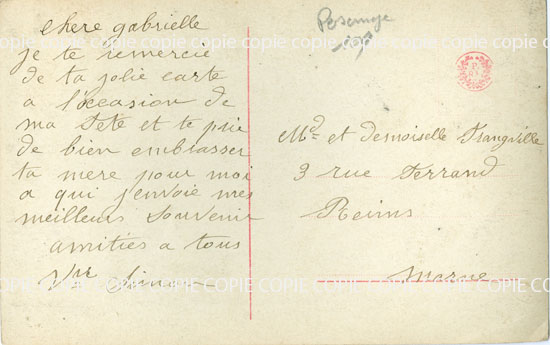 chere gabrielle
je te remercie
de ta jolie carte
a l'occasion de
ma fete et te prie
de bien embrasser
ta mere pour moi
a qui j'envoie mes
meilleurs souvenir
amities a tous
Md et demoiselle Frangville
3 rue Ferrand
Reims
Marne
COPIE COPIE COPIE COPIE COPIE COPIE COPIE
COPIE COPIE COPIE COPIE COPIE COPIE COPIE
COPIE COPIE COPIE COPIE COPIE COPIE COPIE